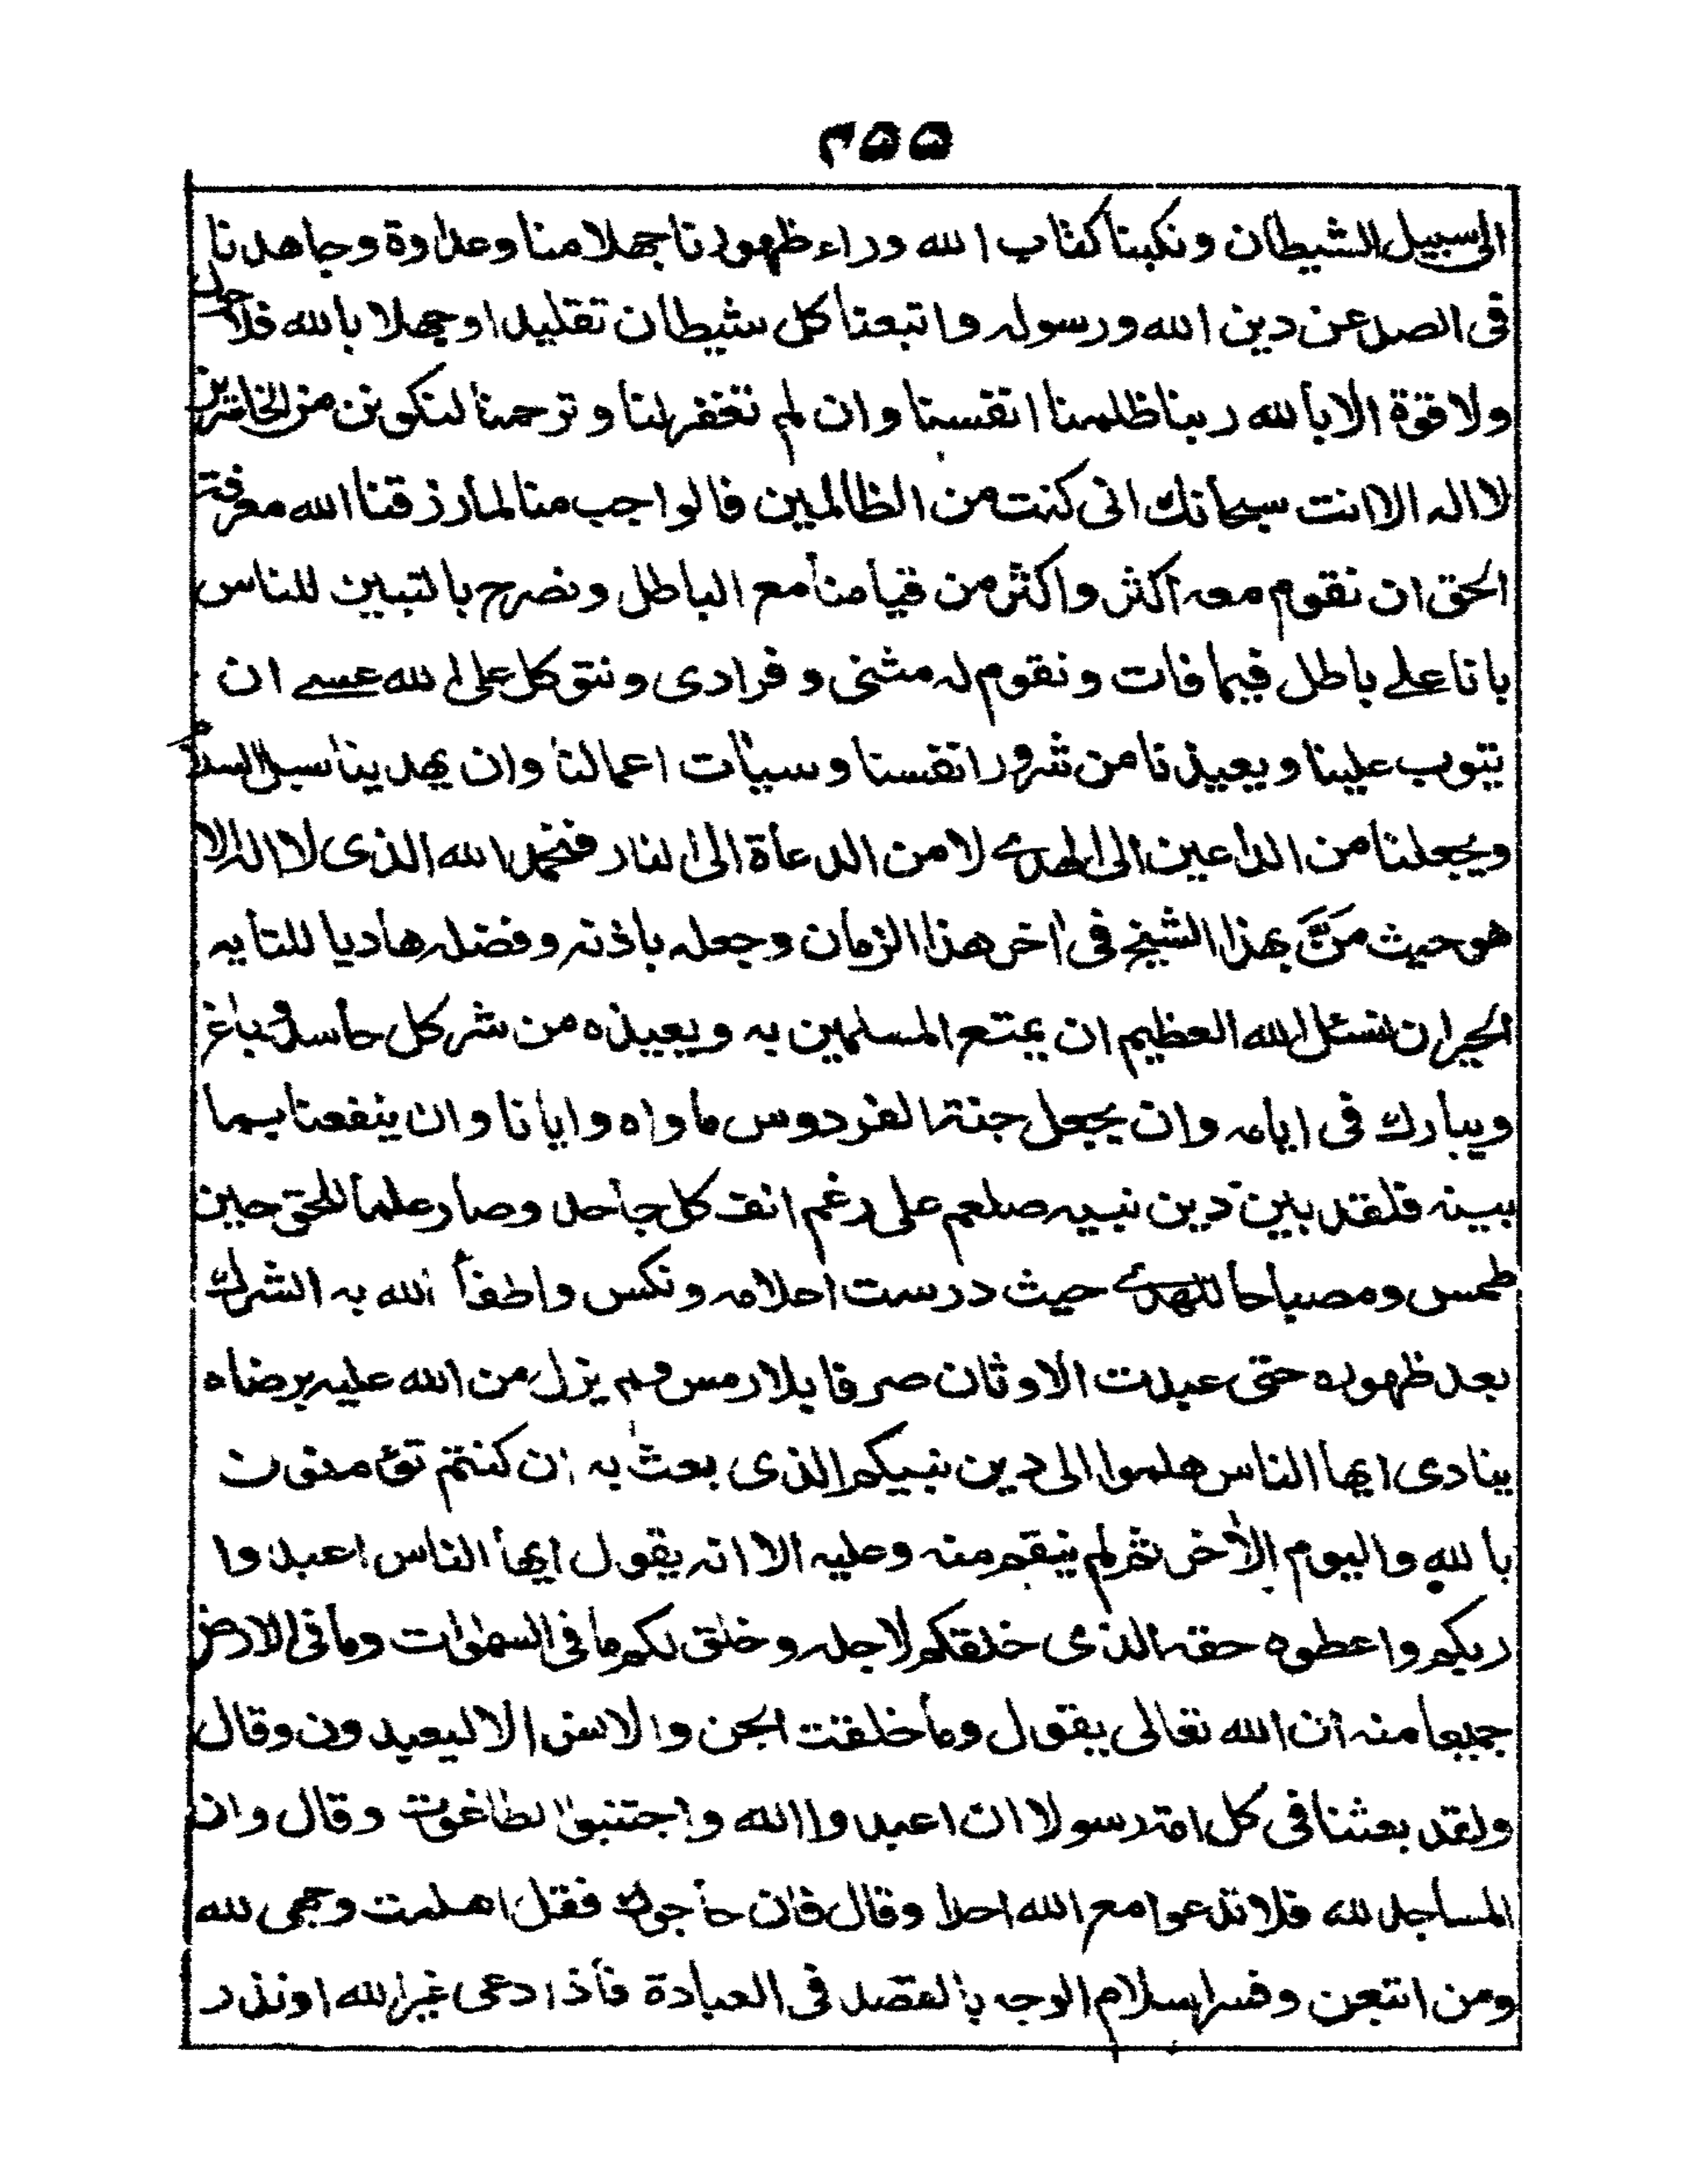 ٣٥٥
الى سبيل الشيطان ونكبنا كتاب الله وراء ظهورنا جهلا منا وعداوة وجاهدنا
فى الصد عن دين الله ورسوله واتبعنا كل شيطان تقليدا وجهلا بالله فلا حول
ولا قوة الا بالله ربنا ظلمنا انفسنا وان لم تغفر لنا وترحمنا لنكونن من الخاسرين
لا اله الا انت سبحانك انى كنت من الظالمين فالواجب منا لما رزقنا الله معرفة
الحق ان نقوم معه اكثر واكثر من قيامنا مع الباطل ونصرح بالتبيين للناس
بانا على باطل فيما فات ونقوم له مثنى وفرادى ونتوكل على الله عسى ان
يتوب علينا ويعيذنا من شرور انفسنا وسيأت اعمالنا وان يهدينا سبل السلام
ويجعلنا من الداعين الى الهدى لا من الدعاة الى النار فنحمد الله الذى لا اله الا
هو حيث مَنَّ بهذا الشيخ فى اخر هذا الزمان وجعله باذنه وفضله هاديا للتايه
الحيران نسئل الله العظيم ان يمتع المسلمين به ويعيذه من شر كل حاسد وباغ
ويبارك فى ايامه وان يجعل جنة الفردوس ماواه وايانا وان ينفعنا بما
بينه فلقد بين دين نبيه صلعم على رغم انف كل جاحد وصار علما للحق حين
طمس ومصباحا للهدى حيث درست احلامه ونكس واطفأ الله به الشرك
بعد ظهوره حتى عبدت الاوثان صرفا بلا رمس ولم يزل من الله عليه برضاه
ينادى ايها الناس هلموا الى دين نبيكم الذى بعث به ان كنتم تؤمنون
بالله واليوم الأخر ثم لم ينقم منه وعليه الا انه يقول ايها الناس اعبدوا
ربكم واعطوه حقه الذى خلقكم لاجله وخلق لكم ما فى السموات وما فى الارض
جميعا منه ان الله تعالى يقول وما خلقت الجن والانس الا ليعبدون وقال
ولقد بعثنا فى كل امة رسولا ان اعبدوا الله واجتنبوا الطاغوت وقال وان
المساجد لله فلا تدعوا مع الله احدا وقال فان حاجوك فقل اسلمت وجهى لله
ومن اتبعن وفسر اسلام الوجه بالقصد فى العبادة فأذا دعى غير الله او نذر